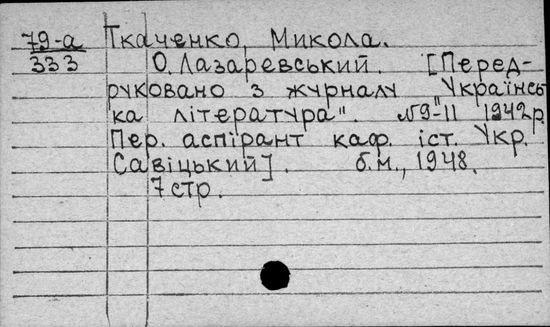 79-а Ткаченко, Микола.
333 О. Лазаревський. [Перед-
руковано з журналу "Українсь-
ка література". №9-11 1942р.
Пер. аспірант каф. іст. Укр.
Савіцький]. б.м., 1948.
7 стр.